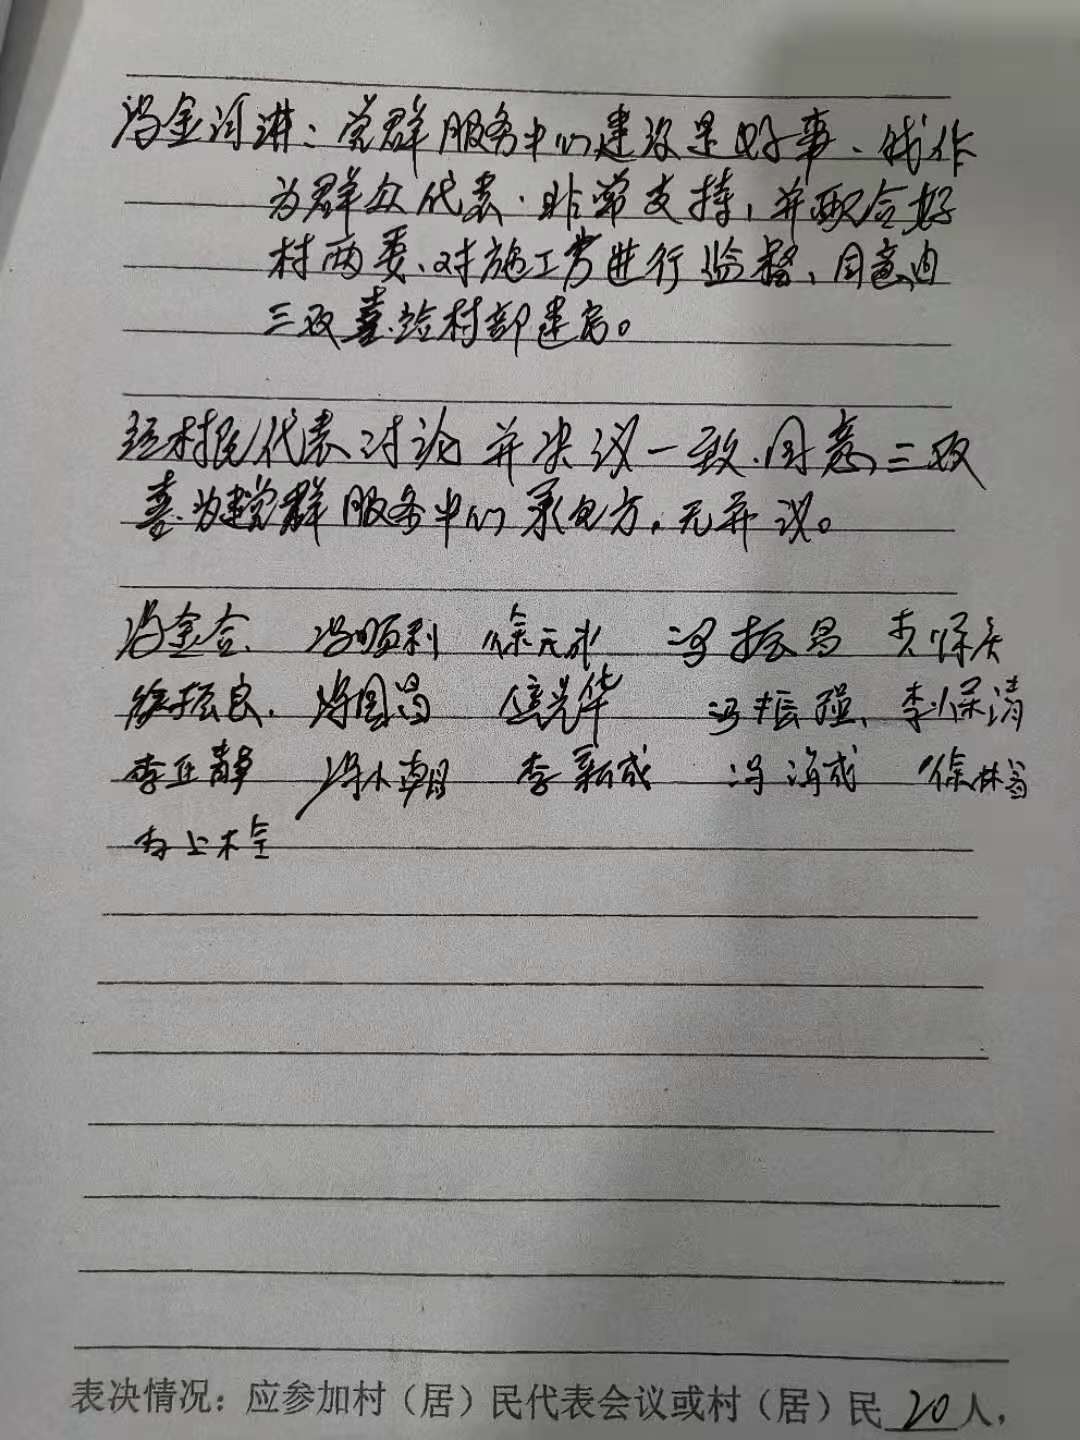 冯金河讲：党群服务中心建设是好事、我作
为群众代表.非常支持，并配合好
村两委、对施工方进行监督、同意由
三双喜.给村部建房。
经村民代表讨论并决议一致.同意三双
喜.为建党群服务中心承包方，无异议。
冯金合、冯顺利 徐元水 冯振昌
徐振良. 冯国昌 信光华 冯振强、李保清
李正静 冯小朝 李新成 冯海成
表决情况：应参加村（居）民代表会议或村（居）民 20 人，